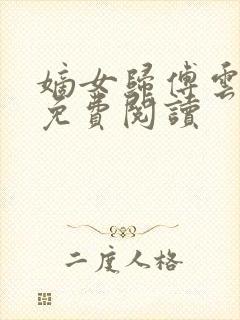 嫡女歸傅雲
免費閱讀
二度人格